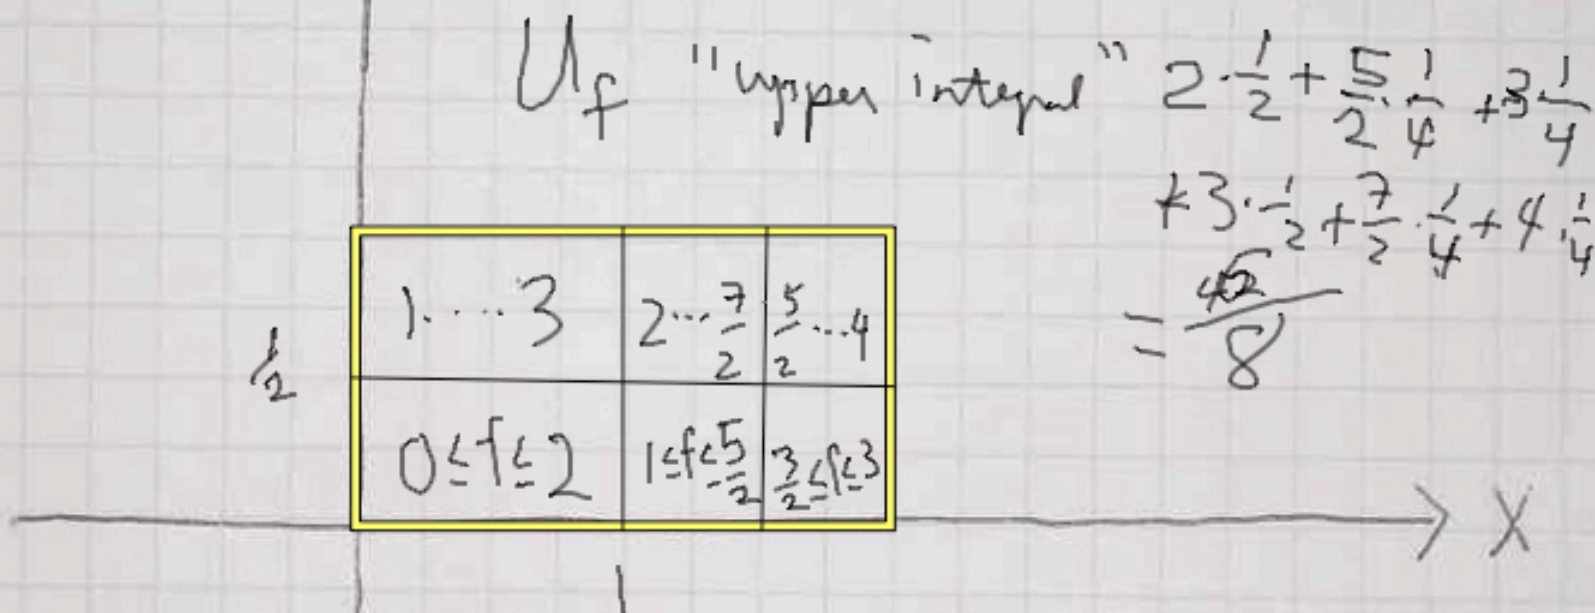 U_f "upper integral" 2·1/2 + 5/2·1/4 + 3 1/4
+ 3·1/2 + 7/2·1/4 + 4·1/4
= 45/8
1....3 2...7/2 5/2...4
1/2
0≤f≤2 1≤f≤5/2 3/2≤f≤3
X